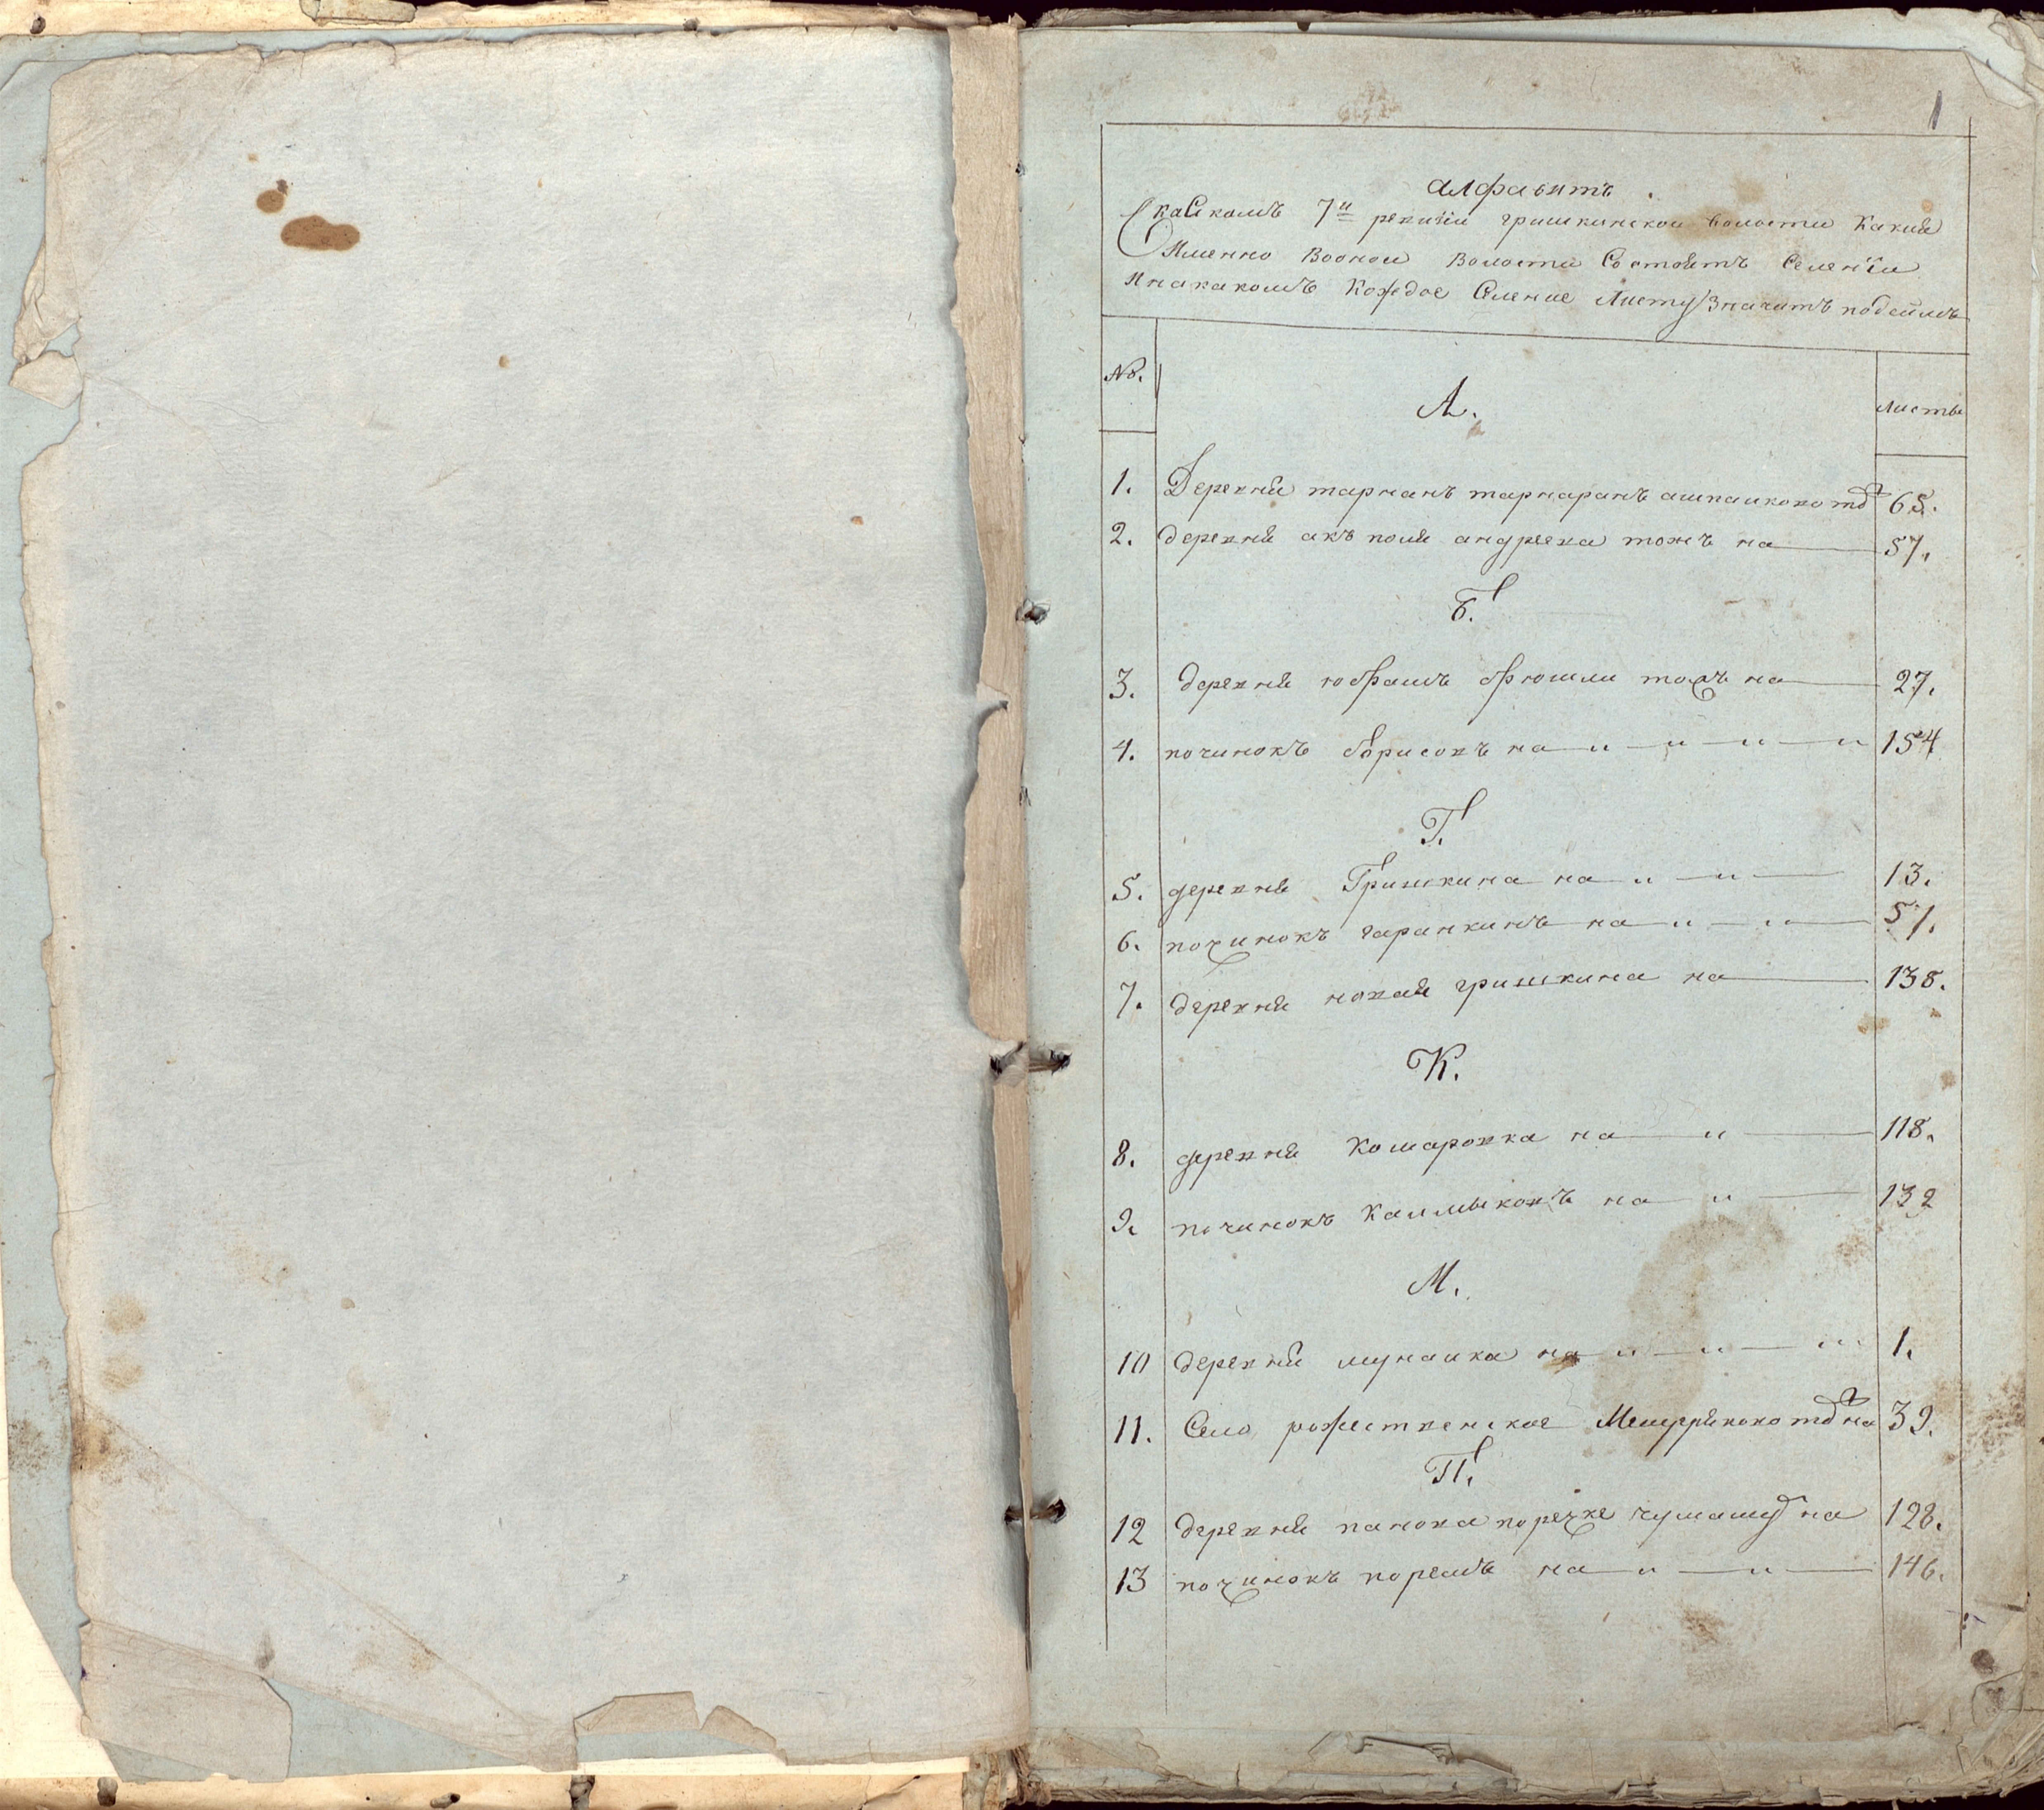 1
алфавитъ
Скаскомъ 7й ревизiи гришкинской волости какия
Именно Воонои Волости Состоитъ Селенiи
Инакакомъ Кождое Селение Листу Значитъ
№.
А.
листы
1. Деревня тарнанъ тарнаранъ 65.
2. деревня акъ поля андреева тожъ на 57.
Б.
3. деревня юбрашъ брюшли тожъ на 27.
4. починокъ борисовъ на „ „ „ „ 154
Г.
5. деревня Гришкина на „ „ 13.
6. починокъ гаранкинъ на „ „ 57.
7. деревня новая гришкина на 138.
К.
8. деревня Комаровка на „ 118.
9. починокъ Калмыковъ на „ 132
М.
10 деревня мунайка на „ „ „ 1.
11. Село рожественское на 39.
П.
12 деревня панова поречке на 128.
13 починокъ порешъ на „ „ 146.